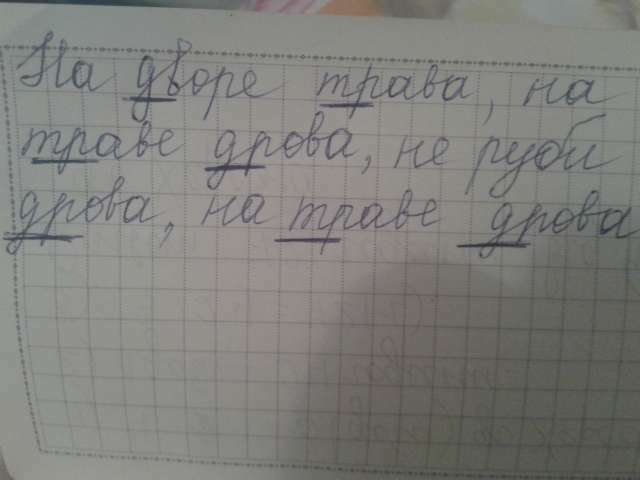 На дворе трава, на
траве дрова, не руби
дрова, на траве дрова